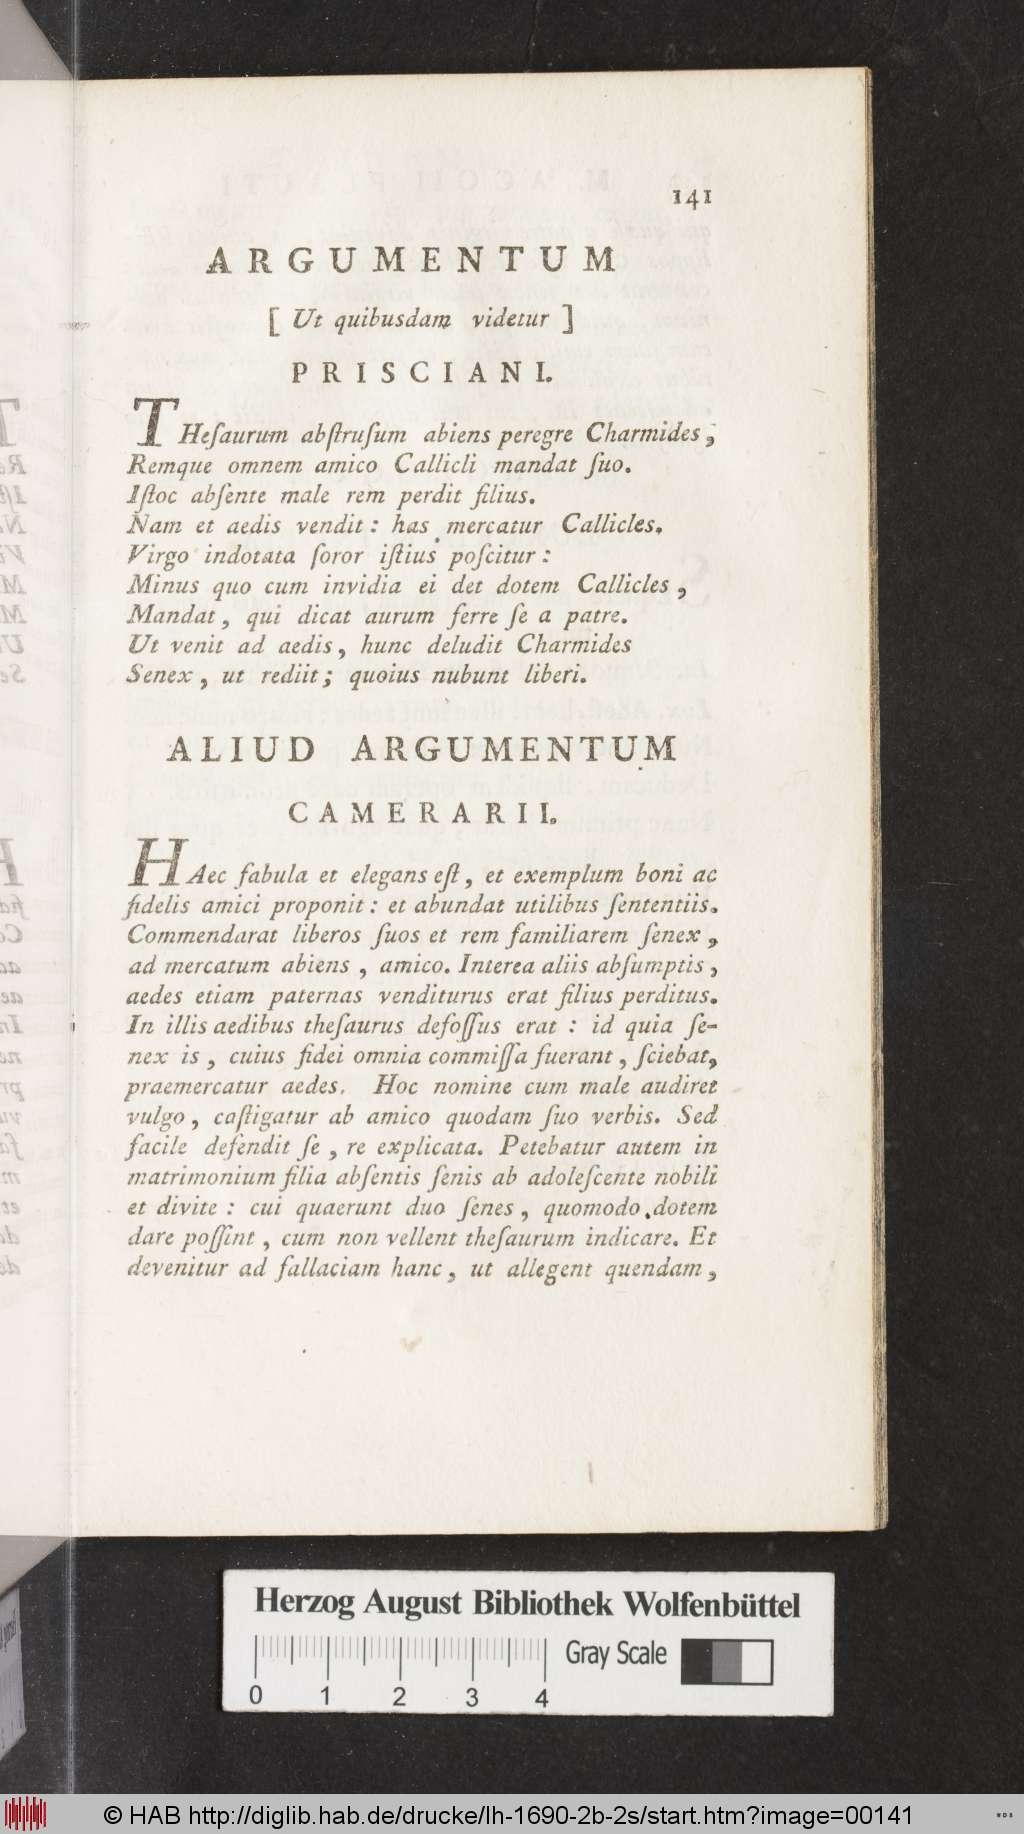 141
ARGUMENTUM
[ Ut quibusdam videtur ]
PRISCIANI.
THeſaurum abſtruſum abiens peregre Charmides,
Remque omnem amico Callicli mandat ſuo.
Iſtoc abſente male rem perdit filius.
Nam et aedis vendit : has mercatur Callicles.
Virgo indotata ſoror iſtius poſcitur :
Minus quo cum invidia ei det dotem Callicles ,
Mandat , qui dicat aurum ferre ſe a patre.
Ut venit ad aedis , hunc deludit Charmides
Senex , ut rediit ; quoius nubunt liberi.
ALIUD ARGUMENTUM
CAMERARII.
HAec fabula et elegans eſt , et exemplum boni ac
fidelis amici proponit : et abundat utilibus ſententiis.
Commendarat liberos ſuos et rem familiarem ſenex ,
ad mercatum abiens , amico. Interea aliis abſumptis ,
aedes etiam paternas venditurus erat filius perditus.
In illis aedibus theſaurus defoſſus erat : id quia ſe-
nex is , cuius fidei omnia commiſſa fuerant , ſciebat,
praemercatur aedes. Hoc nomine cum male audiret
vulgo , caſtigatur ab amico quodam ſuo verbis. Sed
facile defendit ſe , re explicata. Petebatur autem in
matrimonium filia abſentis ſenis ab adoleſcente nobili
et divite : cui quaerunt duo ſenes , quomodo dotem
dare poſſint , cum non vellent theſaurum indicare. Et
devenitur ad fallaciam hanc , ut allegent quendam ,
Herzog August Bibliothek Wolfenbüttel
Gray Scale
0 1 2 3 4
© HAB http://diglib.hab.de/drucke/lh-1690-2b-2s/start.htm?image=00141